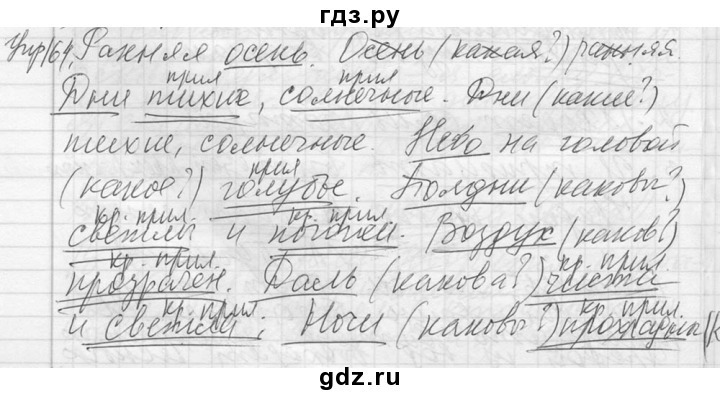 гдз.ру
Упр164. Ранняя осень. Осень (какая?) ранняя.
прил прил
Дни тихие, солнечные. Дни (какие?)
тихие, солнечные. Небо на головой
прил
(какое?) голубое. Полдни (каковы?)
кр. прил. кр. прил.
светлы и Воздух (каков?)
кр. прил. кр. прил.
прозрачен. Даль (какова?) чиста
кр. прил. кр. прил.
и светла; Ночи (каковы?)
gdz.ru